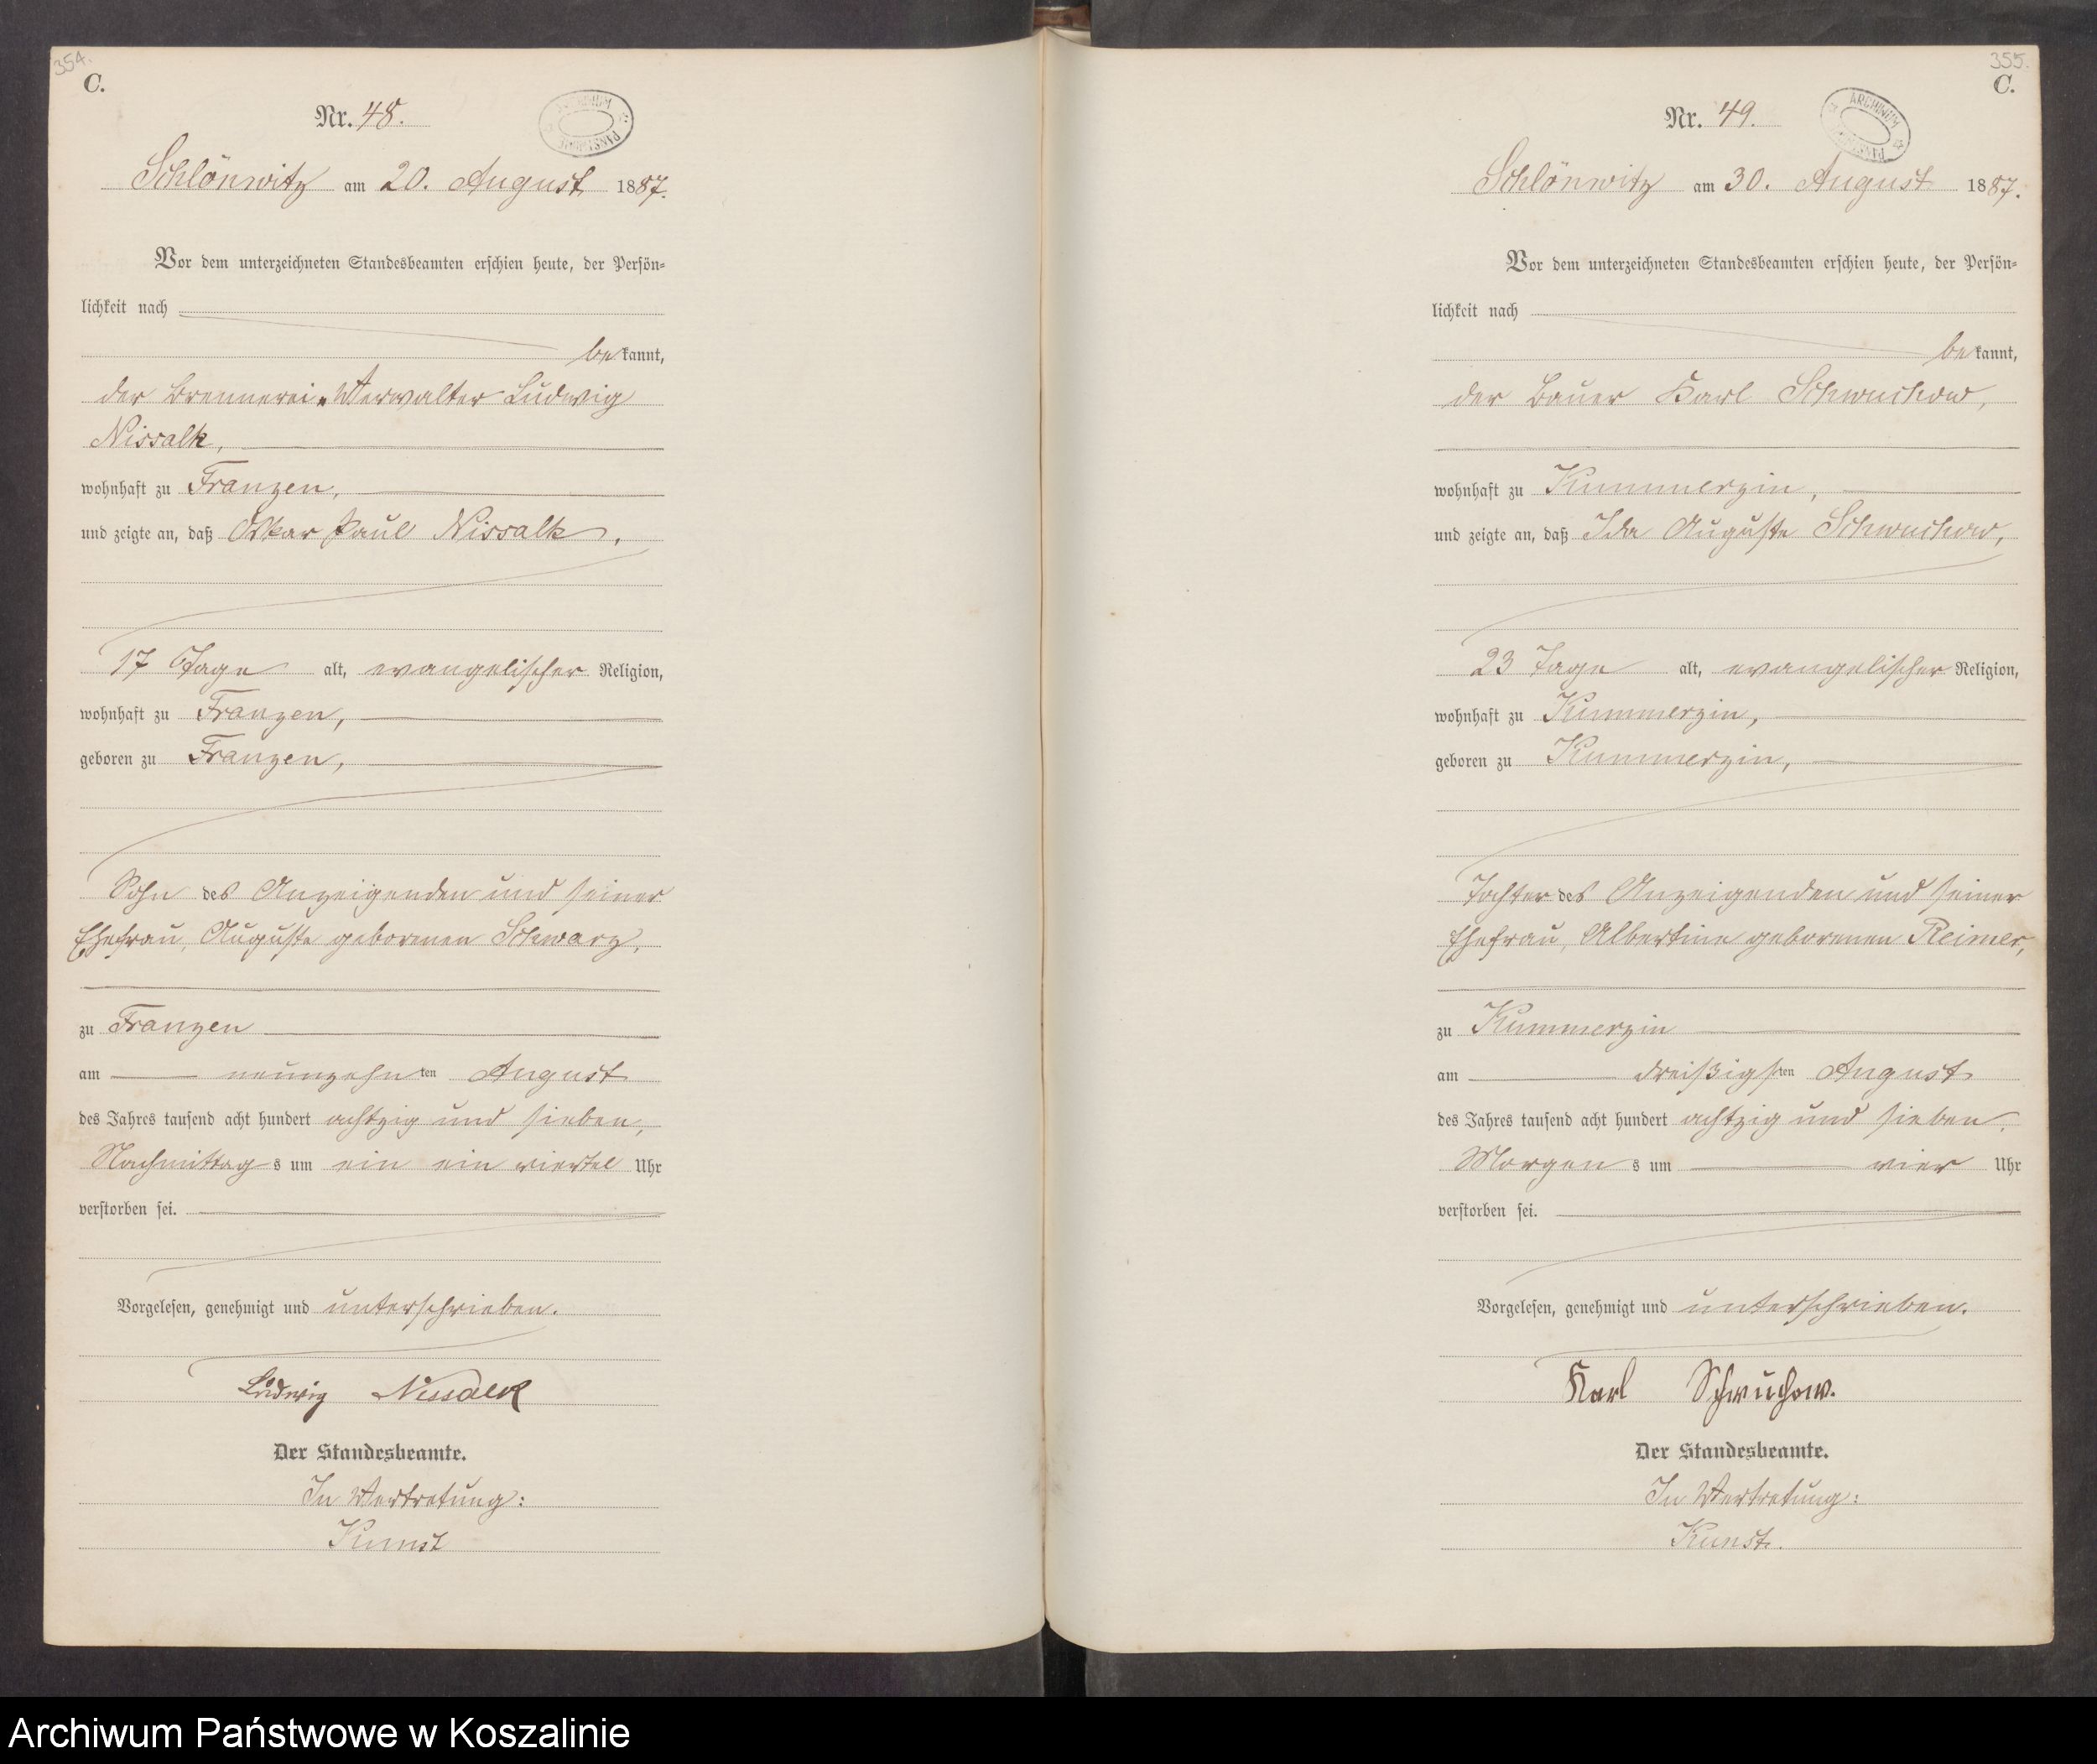 354.
C.
Nr. 48.
ARCHIWUM PAŃSTWOWE
Schlönwitz am 20. August 1887.
Vor dem unterzeichneten Standesbeamten erschien heute, der Persön-
lichkeit nach
bekannt,
der Brennerei-Verwalter Ludwig
Nissalk,
wohnhaft zu Franzen,
und zeigte an, daß Oskar Paul Nissalk,
17 Tage alt, evangelischer Religion,
wohnhaft zu Franzen,
geboren zu Franzen,
Sohn des Anzeigenden und seiner
Ehefrau, Auguste geborenen Schwarz,
zu Franzen
am neunzehnten August
des Jahres tausend acht hundert achtzig und sieben,
Nachmittags um ein ein viertel Uhr
verstorben sei.
Vorgelesen, genehmigt und unterschrieben.
Ludwig Nissalk
Der Standesbeamte.
In Vertretung:
Kunst
355.
C.
Nr. 49.
ARCHIWUM PAŃSTW
Schlönwitz am 30. August 1887.
Vor dem unterzeichneten Standesbeamten erschien heute, der Persön-
lichkeit nach
bekannt,
der Bauer Karl Schwuchow,
wohnhaft zu Kummerzin,
und zeigte an, daß Ida Auguste Schwuchow,
23 Tage alt, evangelischer Religion,
wohnhaft zu Kummerzin,
geboren zu Kummerzin,
Tochter des Anzeigenden und seiner
Ehefrau, Albertine geborenen Reimer,
zu Kummerzin
am dreißigsten August
des Jahres tausend acht hundert achtzig und sieben,
Morgens um vier Uhr
verstorben sei.
Vorgelesen, genehmigt und unterschrieben.
Karl Schwuchow.
Der Standesbeamte.
In Vertretung:
Kunst.
Archiwum Państwowe w Koszalinie